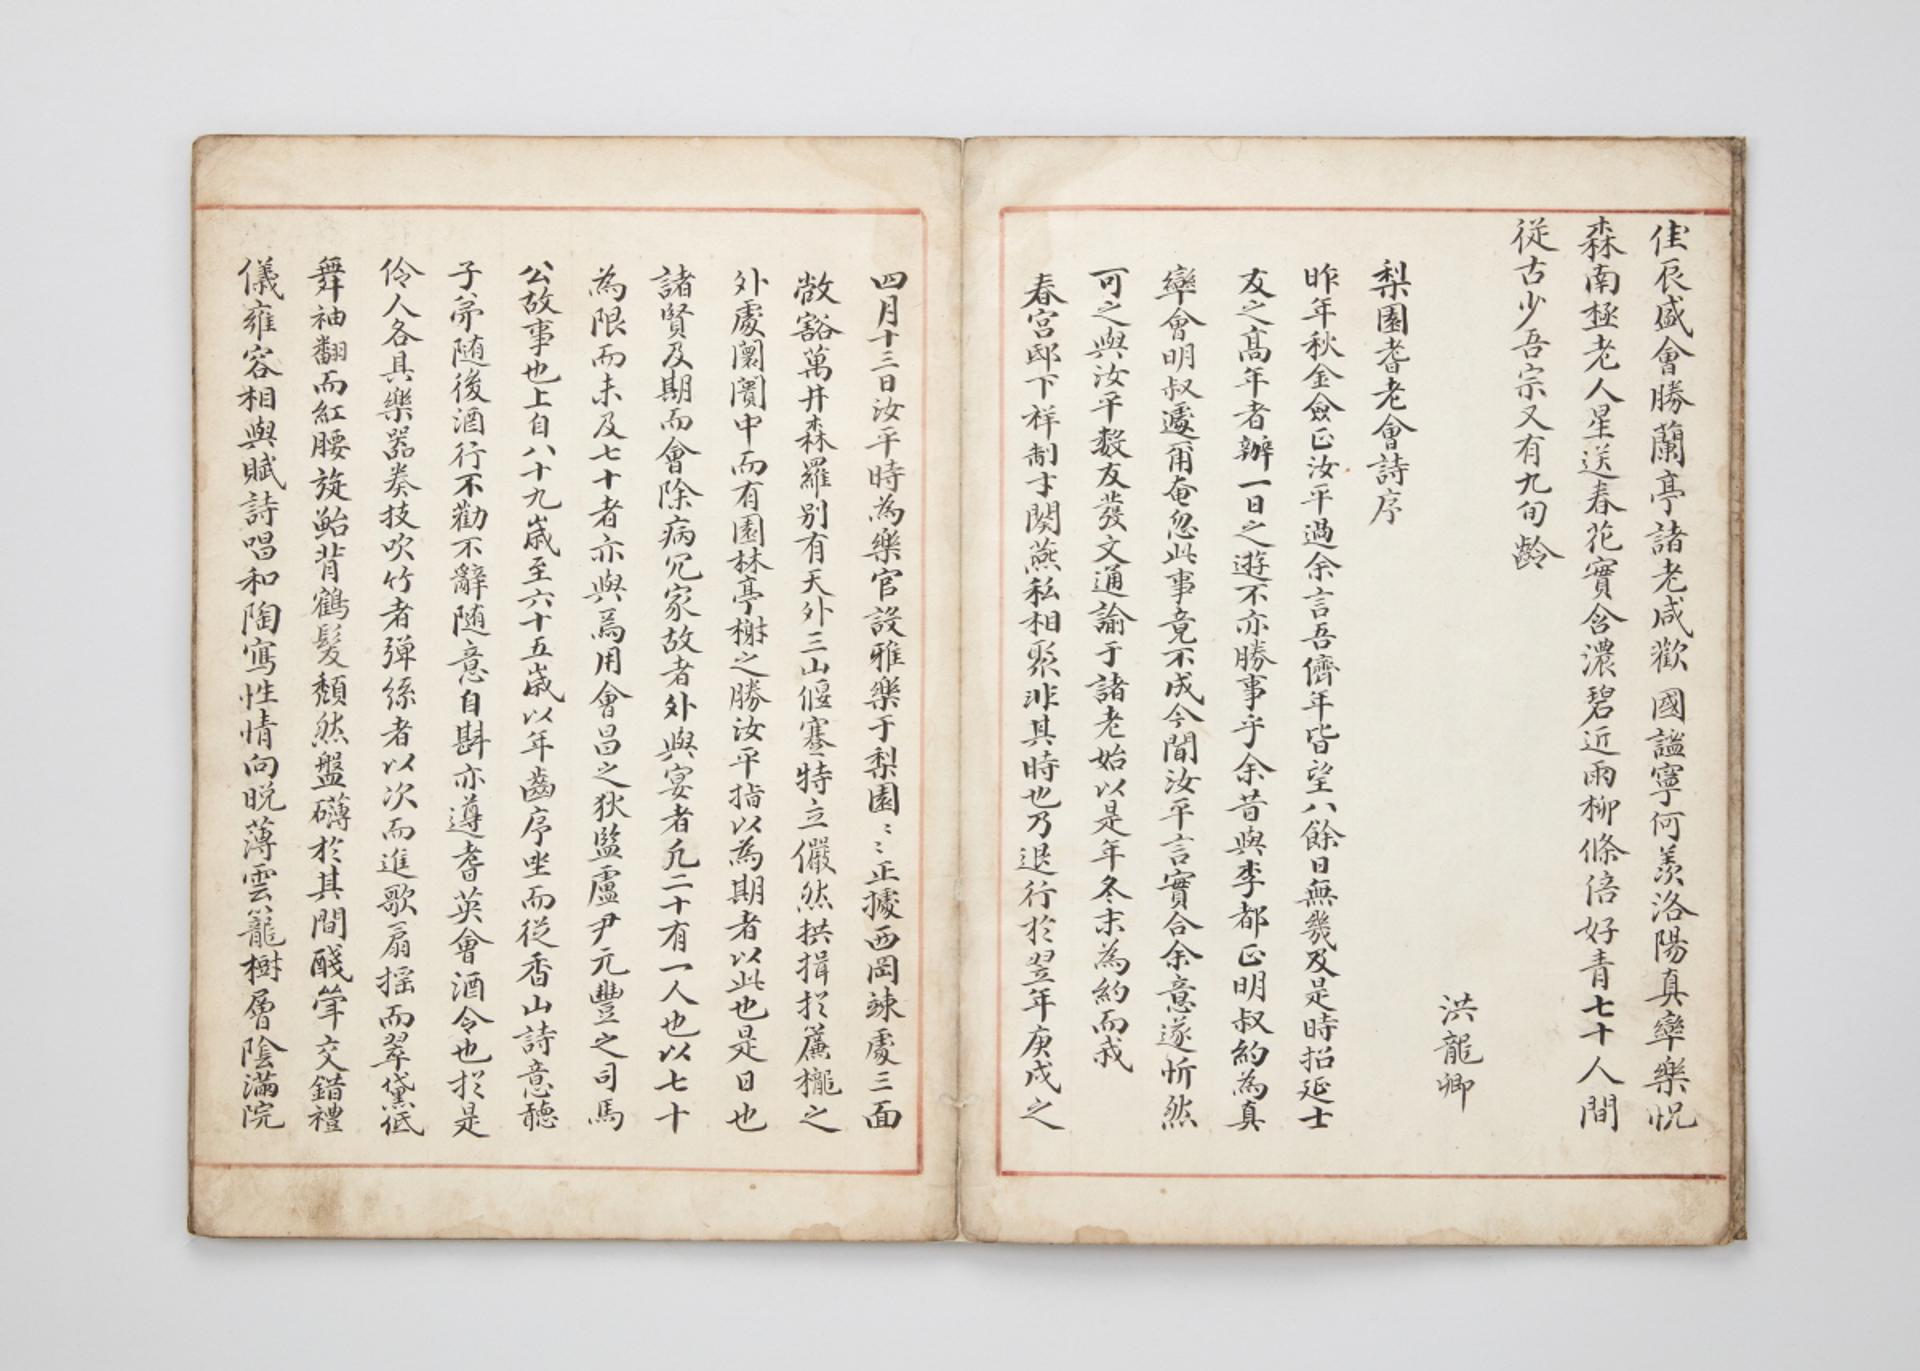 佳辰盛會勝蘭亭諸老咸歡 國謐寧何羨洛陽真率樂怳
森南極老人星送春花實含濃碧近雨柳條倍好青七十人間
從古少吾宗又有九旬齡
洪龍卿
梨園耆老會詩序
昨年秋金僉正汝平過余言吾儕年皆望八餘日無幾及是時招延士
友之高年者辦一日之遊不亦勝事乎余昔與李都正明叔約為真
率會明叔遽爾奄忽此事竟不成今聞汝平言實合余意遂忻然
可之與汝平數友發文通諭于諸老始以是年冬末為約而我
春宮邸下祥制才闋燕私相聚非其時也乃退行於翌年庚戌之
四月十三日汝平時為樂官設雅樂于梨園〻〻正據西岡竦處三面
敞豁萬井森羅別有天外三山偃蹇特立儼然拱揖於簾櫳之
外處闤闠中而有園林亭榭之勝汝平指以為期者以此也是日也
諸賢及期而會除病冗家故者外與宴者凡二十有一人也以七十
為限而未及七十者亦與焉用會昌之狄監盧尹元豐之司馬
公故事也上自八十九歲至六十五歲以年齒序坐而從香山詩意聽
子弟随後酒行不勸不辭随意自斟亦遵耆英會酒令也於是
伶人各具樂器奏技吹竹者彈絲者以次而進歌扇搖而翠黛低
舞袖翻而紅腰旋鮐背鶴髮頹然盤礴於其間醆斝交錯禮
儀雍容相與賦詩唱和陶寫性情向晩薄雲籠樹層陰滿院